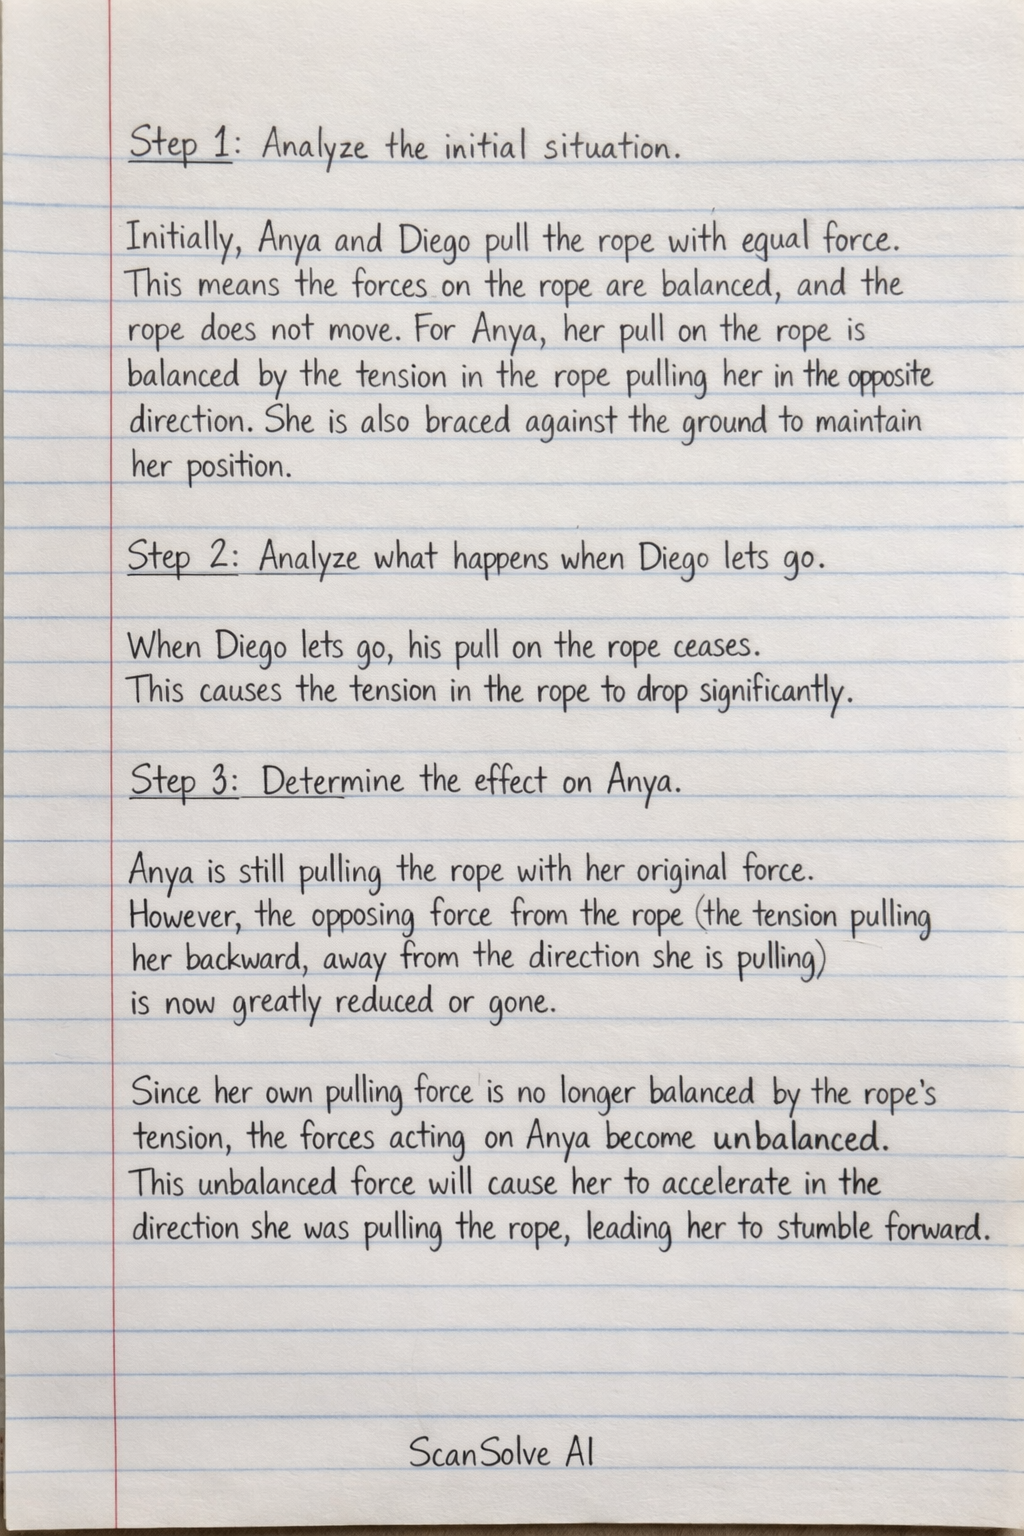 Step 1: Analyze the initial situation.
Initially, Anya and Diego pull the rope with equal force.
This means the forces on the rope are balanced, and the
rope does not move. For Anya, her pull on the rope is
balanced by the tension in the rope pulling her in the opposite
direction. She is also braced against the ground to maintain
her position.
Step 2: Analyze what happens when Diego lets go.
When Diego lets go, his pull on the rope ceases.
This causes the tension in the rope to drop significantly.
Step 3: Determine the effect on Anya.
Anya is still pulling the rope with her original force.
However, the opposing force from the rope (the tension pulling
her backward, away from the direction she is pulling)
is now greatly reduced or gone.
Since her own pulling force is no longer balanced by the rope's
tension, the forces acting on Anya become unbalanced.
This unbalanced force will cause her to accelerate in the
direction she was pulling the rope, leading her to stumble forward.
ScanSolve AI